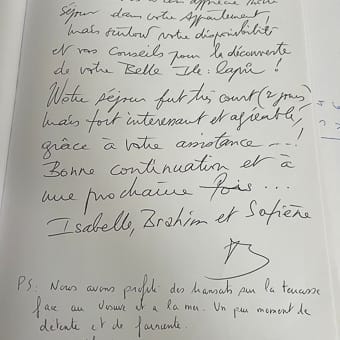 séjour dans votre appartement,
mais surtout votre disponibilité
et vos conseils pour la découverte
de votre Belle Ile : Capri !
Notre séjour fut très court (2 jours)
mais fort intéressant et agréable,
grâce à votre assistance ---!
Bonne continuation et à
une prochaine fois ...
Isabelle, Brahim et Sofiène
PS: Nous avons profité des transats sur la terrasse
face au Vésuve et à la mer. Un pur moment de
détente et de farniente.